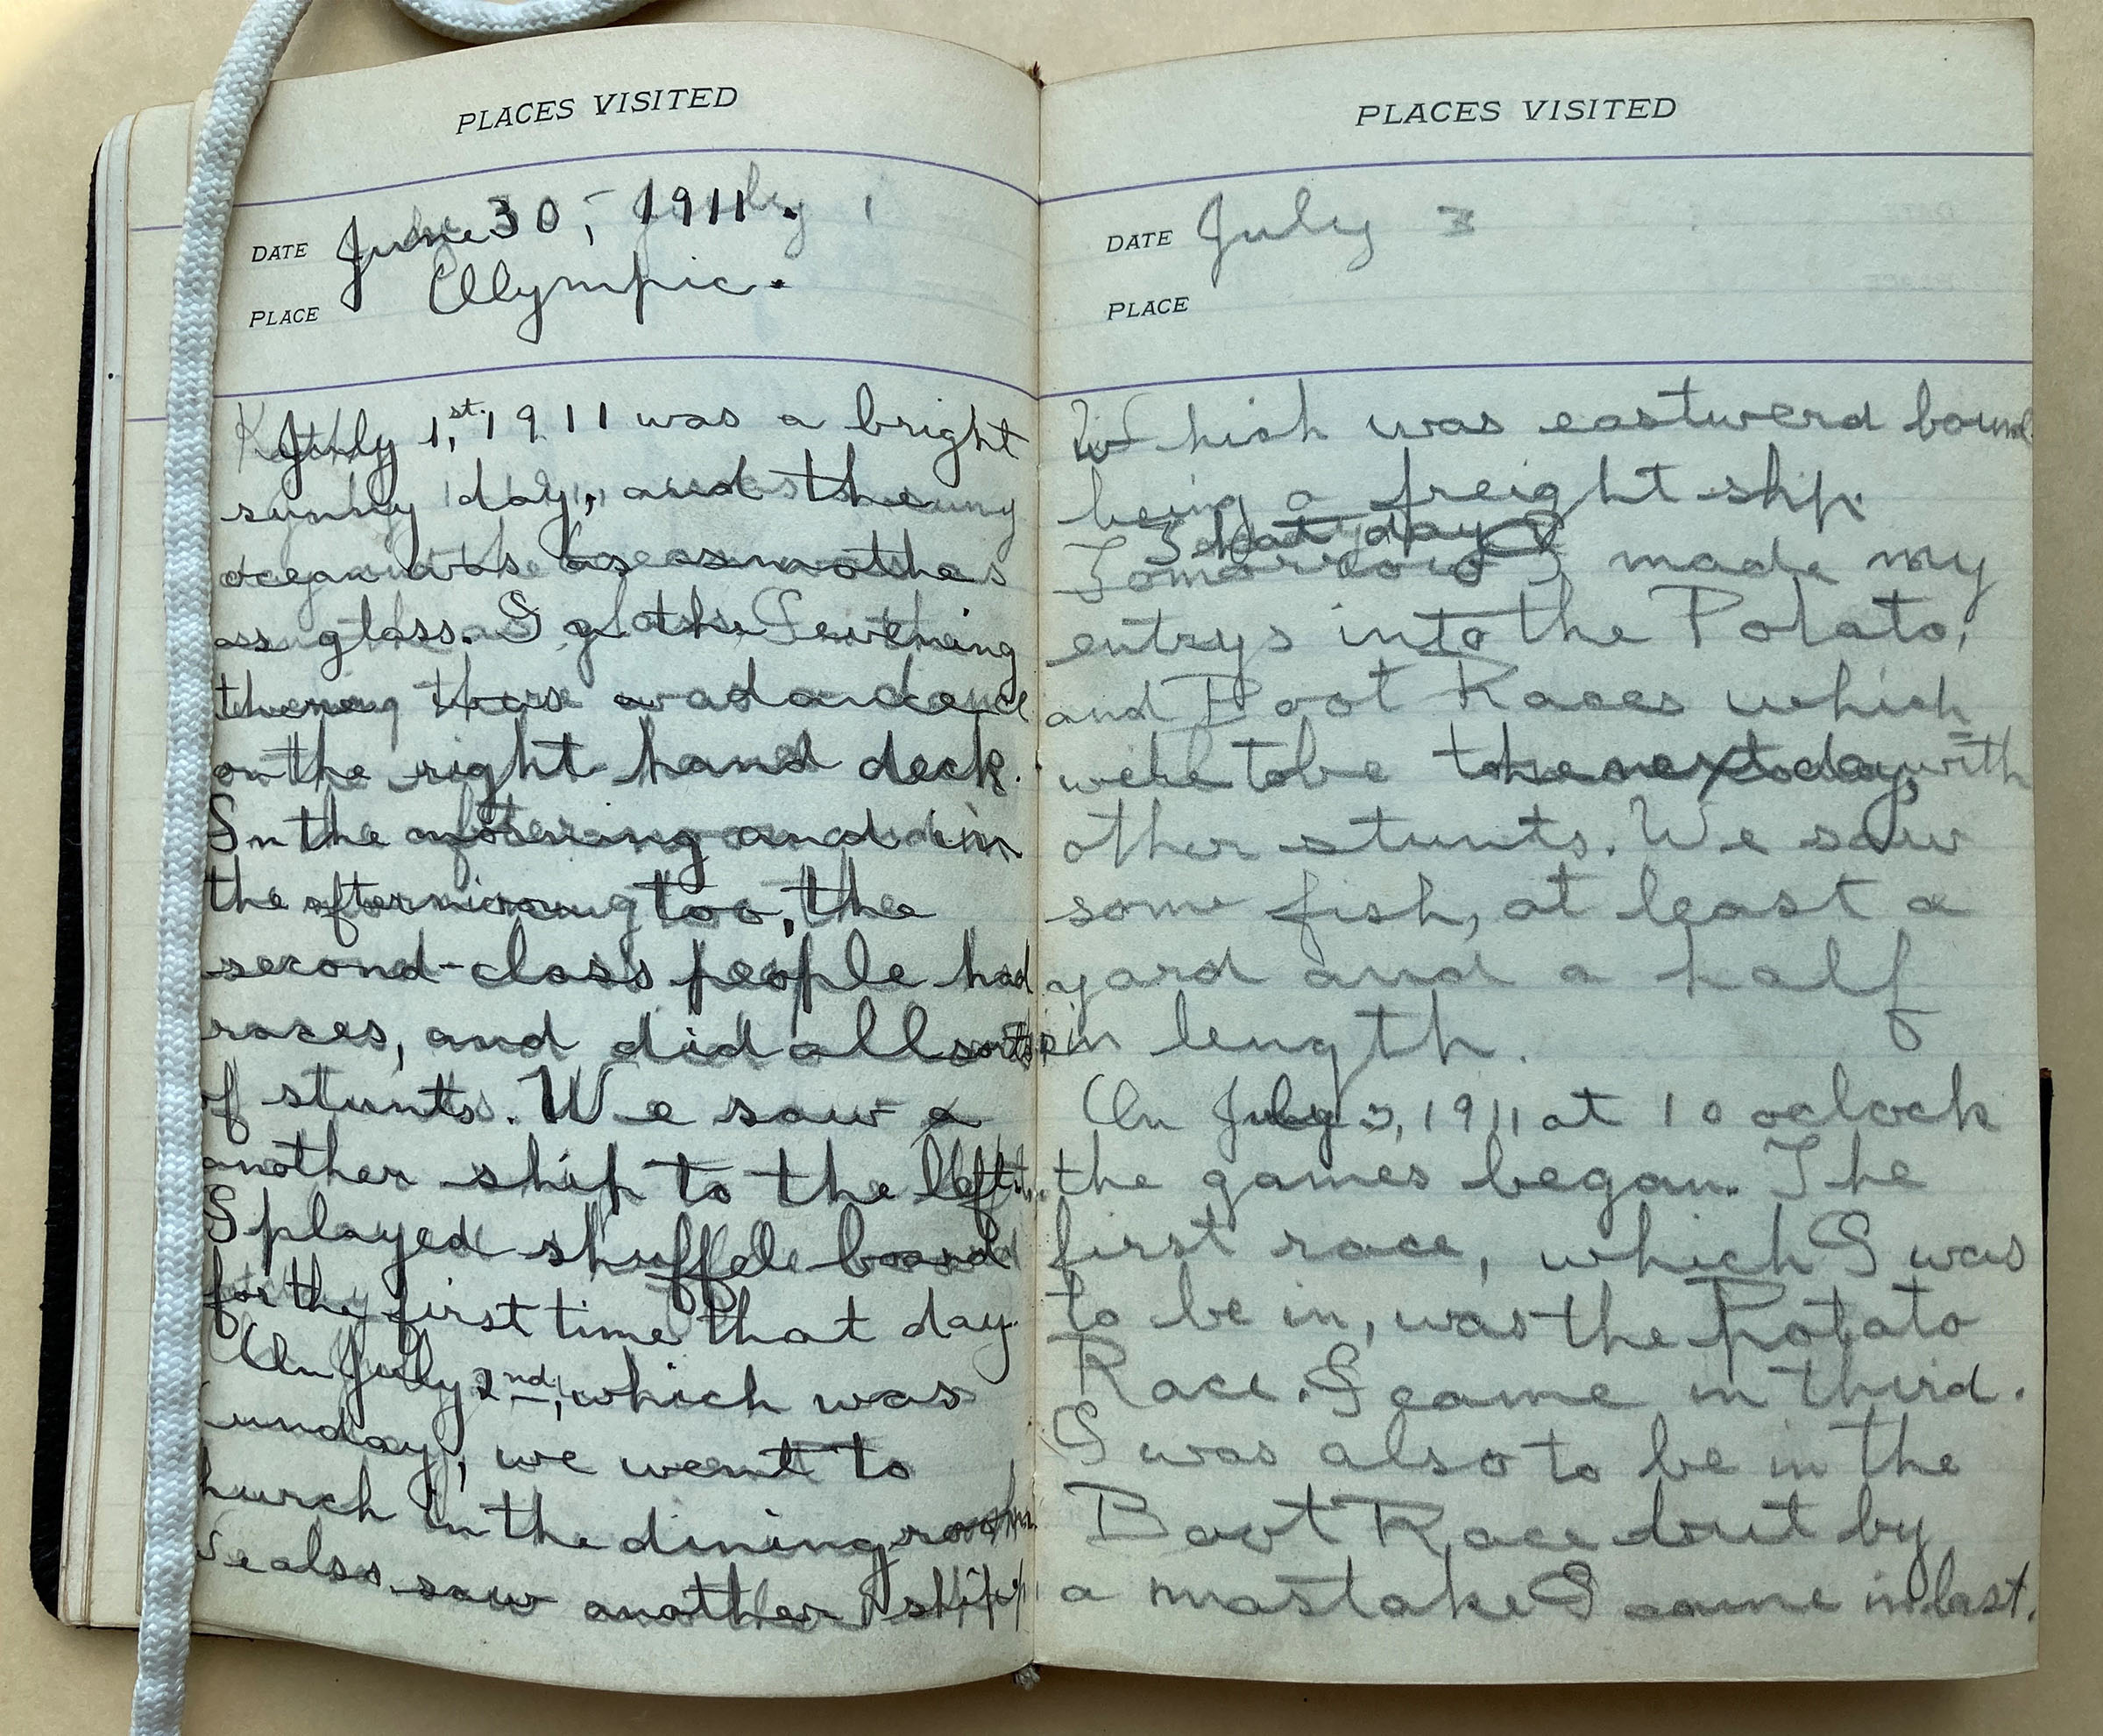 PLACES VISITED
DATE June 30, 1911.
PLACE Olympic.
July 1,st. 1911 was a bright
sunny day, and the
ocean was as smothe
as glass. I the
there was a dance
on the right hand deck.
In the morning and in
the afternoon too, the
second-class people had
races, and did all sorts
of stunts. We saw a
another ship to the left.
I played shuffle board
for the first time that day.
On July 2nd, which was
unday, we went to
hurch in the dining room
e also saw another ship
PLACES VISITED
DATE July 3
PLACE
Which was eastwerd bound
being a freight ship.
That day I
Tomorrow I made my
entrys into the Potato,
and Boot Races which
were to be the next day, with
other stunts. We saw
some fish, at least a
yard and a half
in length.
On July 3, 1911 at 10 oclock
the games began. The
first race, which I was
to be in, was the Potato
Race. I came in third.
I was also to be in the
Boot Race but by
a mastake I came in last.